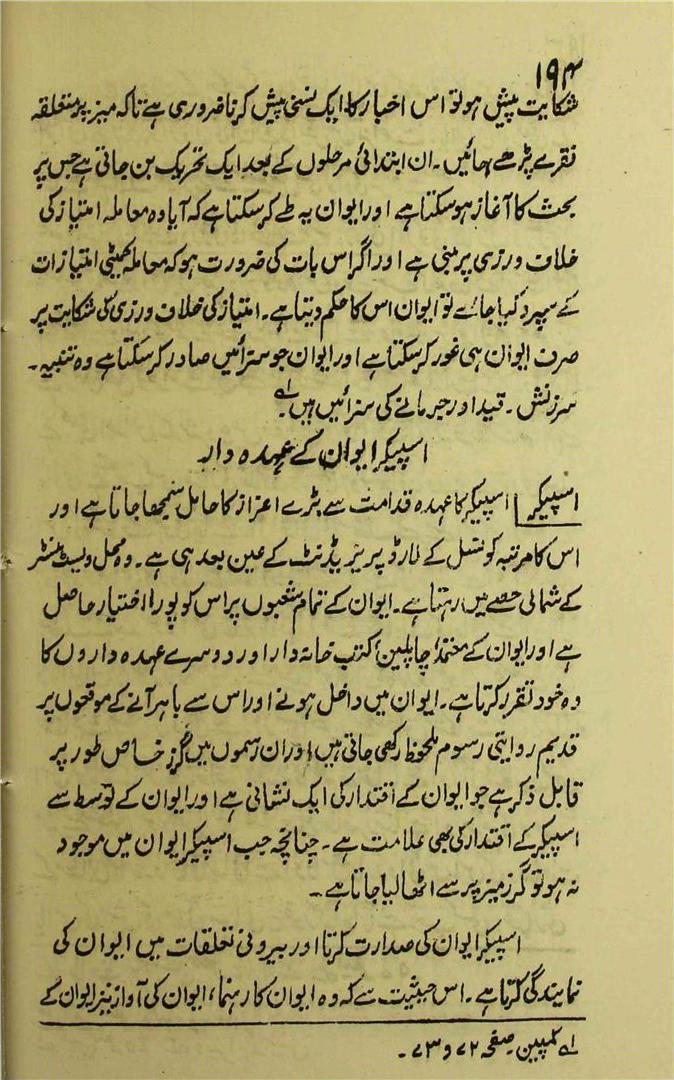 ۱۹۴
شکایت پیش ہو تو اس اخبار کا ایک نسخہ پیش کرنا ضروری ہے تاکہ میز پر متعلقہ
فقرے پڑھے جائیں۔ ان ابتدائی مرحلوں کے بعد ایک تحریک بن جاتی ہے جس پر
بحث کا آغاز ہو سکتا ہے اور ایوان یہ طے کر سکتا ہے کہ آیا وہ معاملہ امتیاز کی
خلاف ورزی پر مبنی ہے اور اگر اس بات کی ضرورت ہو کہ معاملہ کمیٹی امتیازات
کے سپرد کیا جائے تو ایوان اس کا حکم دیتا ہے۔ امتیاز کی خلاف ورزی کی شکایت پر
صرف ایوان ہی غور کر سکتا ہے اور ایوان جو سزائیں صادر کر سکتا ہے وہ تنبیہ۔
سرزنش۔ قید اور جرمانے کی سزائیں ہیں۔ لہ
اسپیکر ایوان کے عہدہ دار
اسپیکر اسپیکر کا عہدہ قدامت سے بڑے اعزاز کا حامل سمجھا جاتا ہے اور
اس کا مرتبہ کونسل کے لارڈ پریزیڈنٹ کے عین بعد ہی ہے۔ وہ محل ویسٹ منسٹر
کے شمالی حصے میں رہتا ہے۔ ایوان کے تمام شعبوں پر اس کو پورا اختیار حاصل
ہے اور ایوان کے معتمد، چاپلین، کتب خانہ دار اور دوسرے عہدہ داروں کا
وہ خود تقرر کرتا ہے۔ ایوان میں داخل ہونے اور اس سے باہر آنے کے موقعوں پر
قدیم روایتی رسوم ملحوظ رکھی جاتی ہیں اور ان رسموں میں گرز خاص طور پر
قابل ذکر ہے جو ایوان کے اقتدار کی ایک نشانی ہے اور ایوان کے توسط سے
اسپیکر کے اقتدار کی بھی علامت ہے۔ چنانچہ جب اسپیکر ایوان میں موجود
نہ ہو تو گرز میز پر سے اٹھا لیا جاتا ہے۔
اسپیکر ایوان کی صدارت کرتا اور بیرونی تعلقات میں ایوان کی
نمایندگی کرتا ہے۔ اس حیثیت سے کہ وہ ایوان کا رہنما، ایوان کی آواز نیز ایوان کے
لہ کمپین۔ صفحہ ۷۲ و ۷۳۔